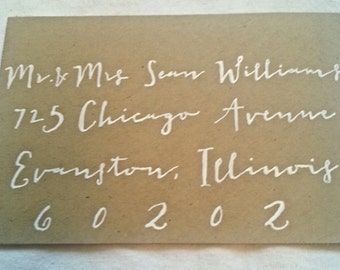 Mr. & Mrs Sean Williams
725 Chicago Avenue
Evanston, Illinois
6 0 2 0 2